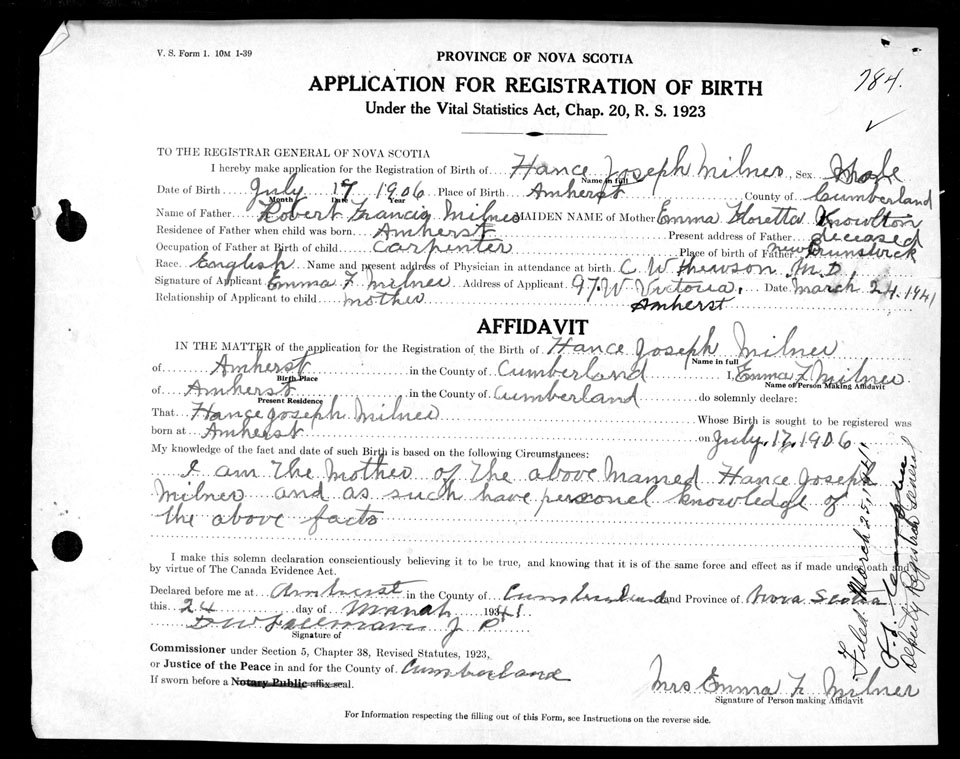 V. S. Form 1. 10M 1-39
PROVINCE OF NOVA SCOTIA
784.
APPLICATION FOR REGISTRATION OF BIRTH
Under the Vital Statistics Act, Chap. 20, R. S. 1923
TO THE REGISTRAR GENERAL OF NOVA SCOTIA
I hereby make application for the Registration of Birth of Hance Joseph Milner, Sex Male
Name in full
Date of Birth July 17 1906 Place of Birth Amherst County of Cumberland
Month Date Year
Name of Father Robert Francis Milner MAIDEN NAME of Mother Emma Floretta Knowlton
Residence of Father when child was born Amherst Present address of Father deceased
Occupation of Father at Birth of child Carpenter Place of birth of Father New Brunswick
Race English Name and present address of Physician in attendance at birth C. W. Hewson M.D.
Signature of Applicant Emma F Milner Address of Applicant 97 W Victoria, Amherst Date March 24, 1941
Relationship of Applicant to child mother
AFFIDAVIT
IN THE MATTER of the application for the Registration of the Birth of Hance Joseph Milner
Name in full
of Amherst in the County of Cumberland I, Emma F. Milner
Birth Place Name of Person Making Affidavit
of Amherst in the County of Cumberland do solemnly declare:
Present Residence
That Hance Joseph Milner Whose Birth is sought to be registered was
born at Amherst on July, 17, 1906
My knowledge of the fact and date of such Birth is based on the following Circumstances:
I am the Mother of the above Named Hance Joseph
Milner and as such have personel knowledge of
the above facts
I make this solemn declaration conscientiously believing it to be true, and knowing that it is of the same force and effect as if made under oath and
by virtue of The Canada Evidence Act.
Declared before me at Amherst in the County of Cumberland and Province of Nova Scotia
this 24 day of March 1941
J P
Signature of
Commissioner under Section 5, Chapter 38, Revised Statutes, 1923,
or Justice of the Peace in and for the County of Cumberland
If sworn before a Notary Public affix seal.
Mrs Emma F. Milner
Signature of Person making Affidavit
For Information respecting the filling out of this Form, see Instructions on the reverse side.
Filed March 25, 1941
Deputy Registrar General